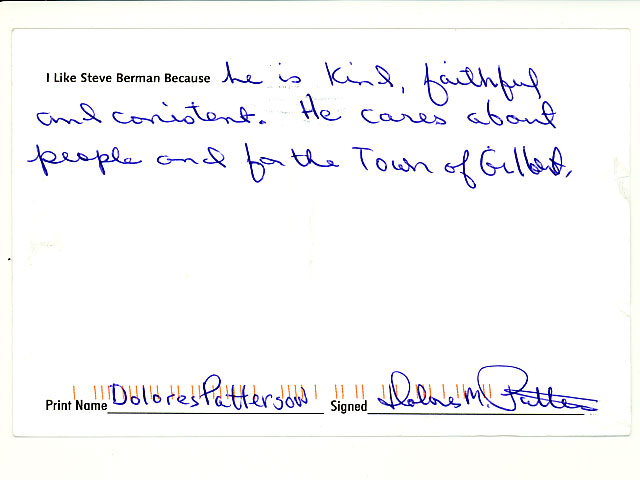 I Like Steve Berman Because he is Kind, faithful
and conistent. He cares about
people and for the Town of Gilbert.
Print Name Dolores Patterson Signed Dolores M. Patterson